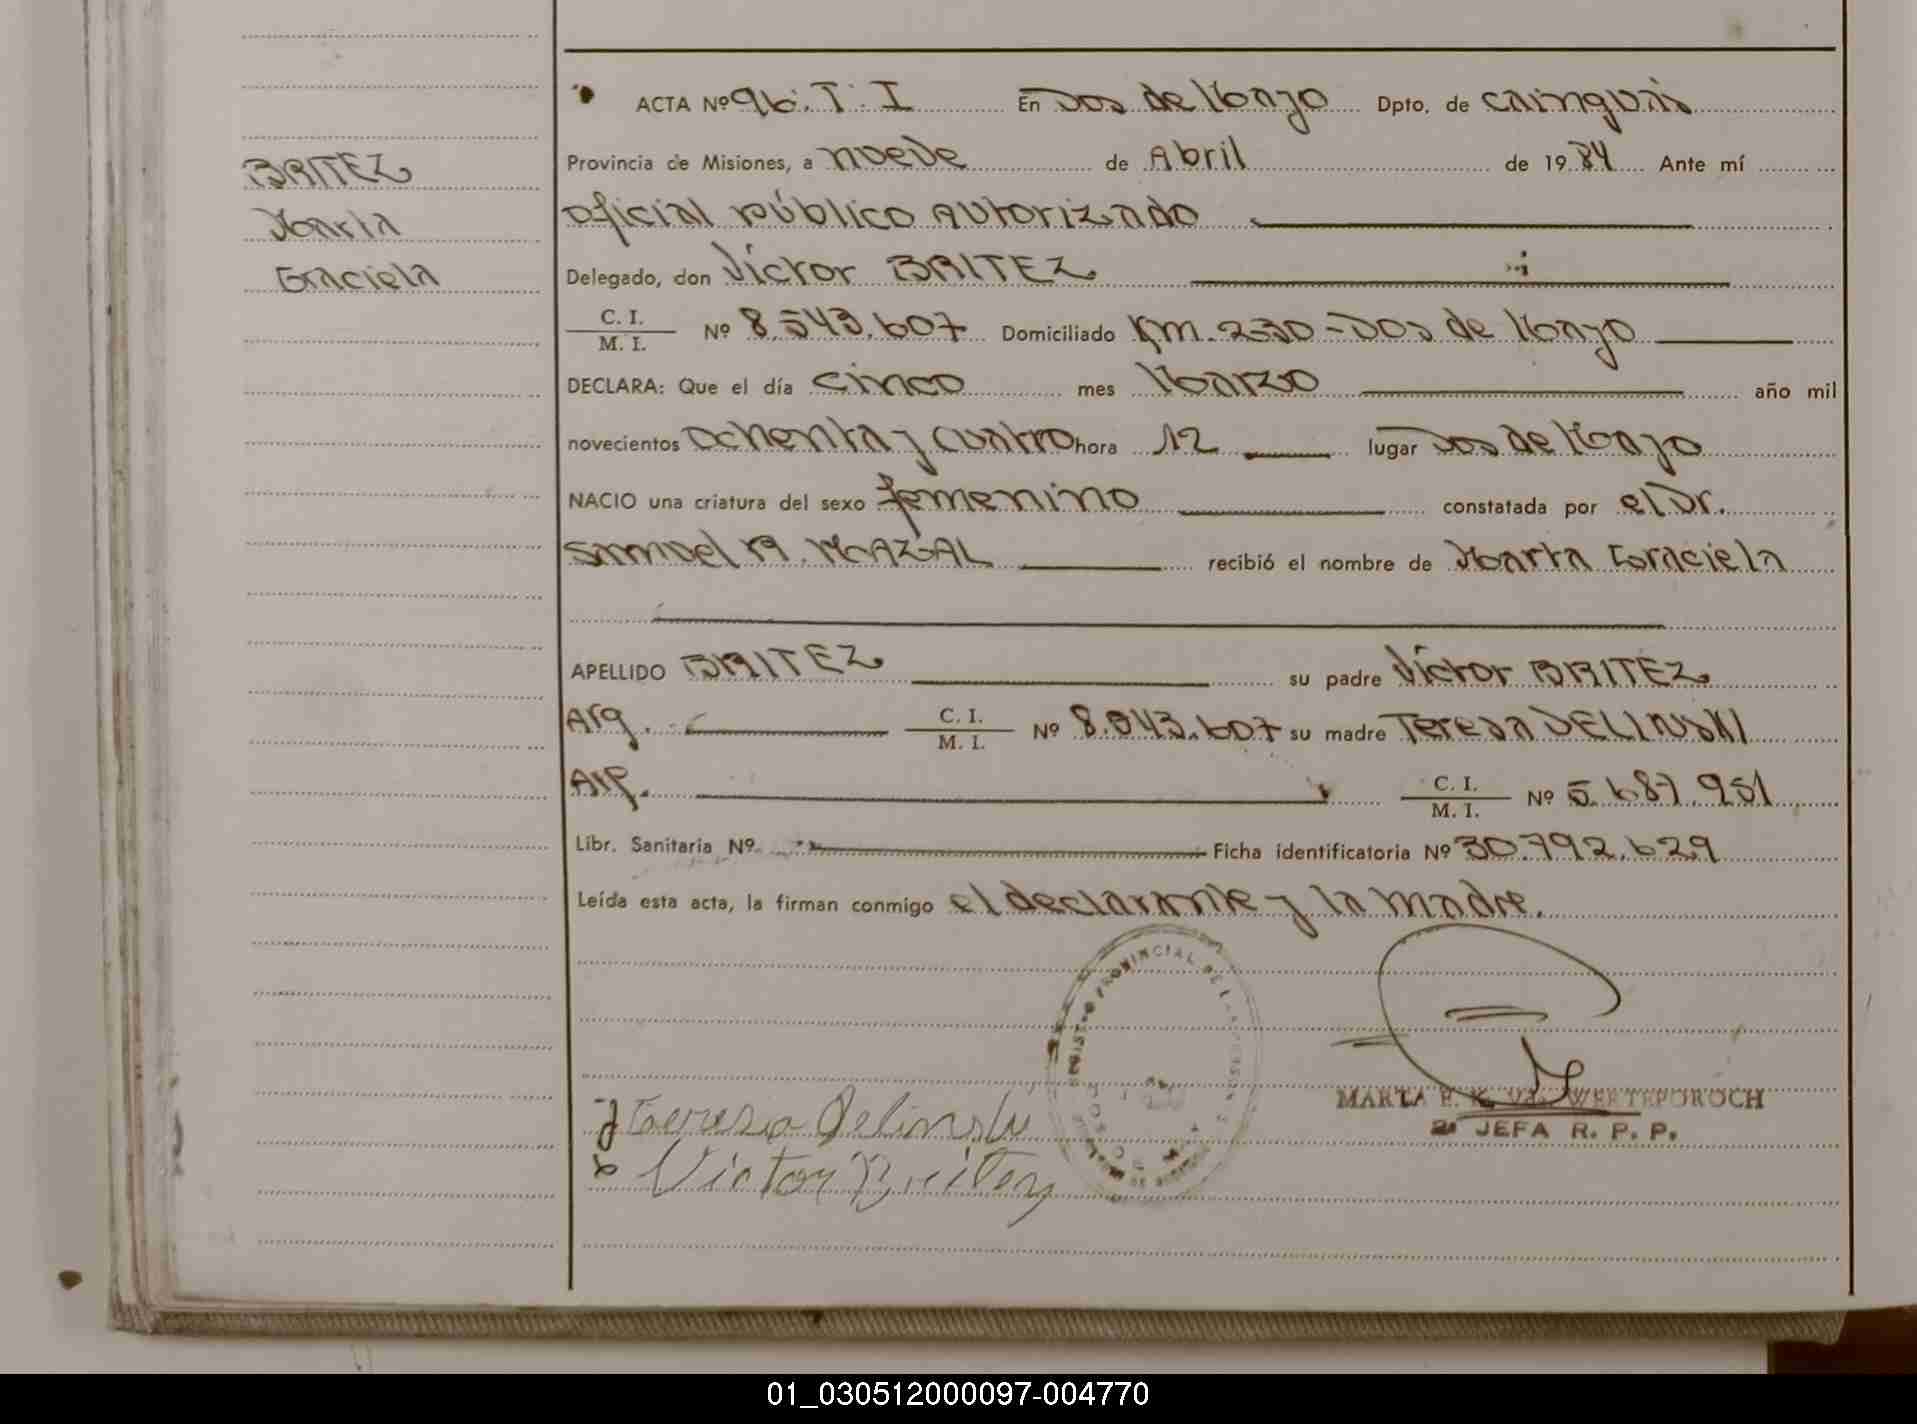 ACTA Nº 96. T. I En Dos de Mayo Dpto. de Cainguás
Provincia de Misiones, a nueve de Abril de 1984 Ante mí
BRITEZ
oficial público Autorizado
Graciela
Delegado, don Víctor BRITEZ
C. I. / M. I. Nº 8.543.607 Domiciliado Km. 230 - Dos de Mayo
DECLARA: Que el día cinco mes Marzo año mil
novecientos ochenta y cuatro hora 12 lugar Dos de Mayo
NACIO una criatura del sexo femenino constatada por el Dr.
Samuel A. MAZAL recibió el nombre de Marta Graciela
APELLIDO BRITEZ su padre Víctor BRITEZ
Arg. C. I. / M. I. Nº 8.543.607 su madre Teresa DELINSKI
Arg. C. I. / M. I. Nº 5.687.951
Libr. Sanitaria Nº Ficha identificatoria Nº 30.792.629
Leída esta acta, la firman conmigo el declarante y la madre.
REGISTRO PROVINCIAL DE LAS PERSONAS
MARTA E. K. WERTEPOROCH
2ª JEFA R. P. P.
Teresa Delinski
Victor Britez
01_030512000097-004770